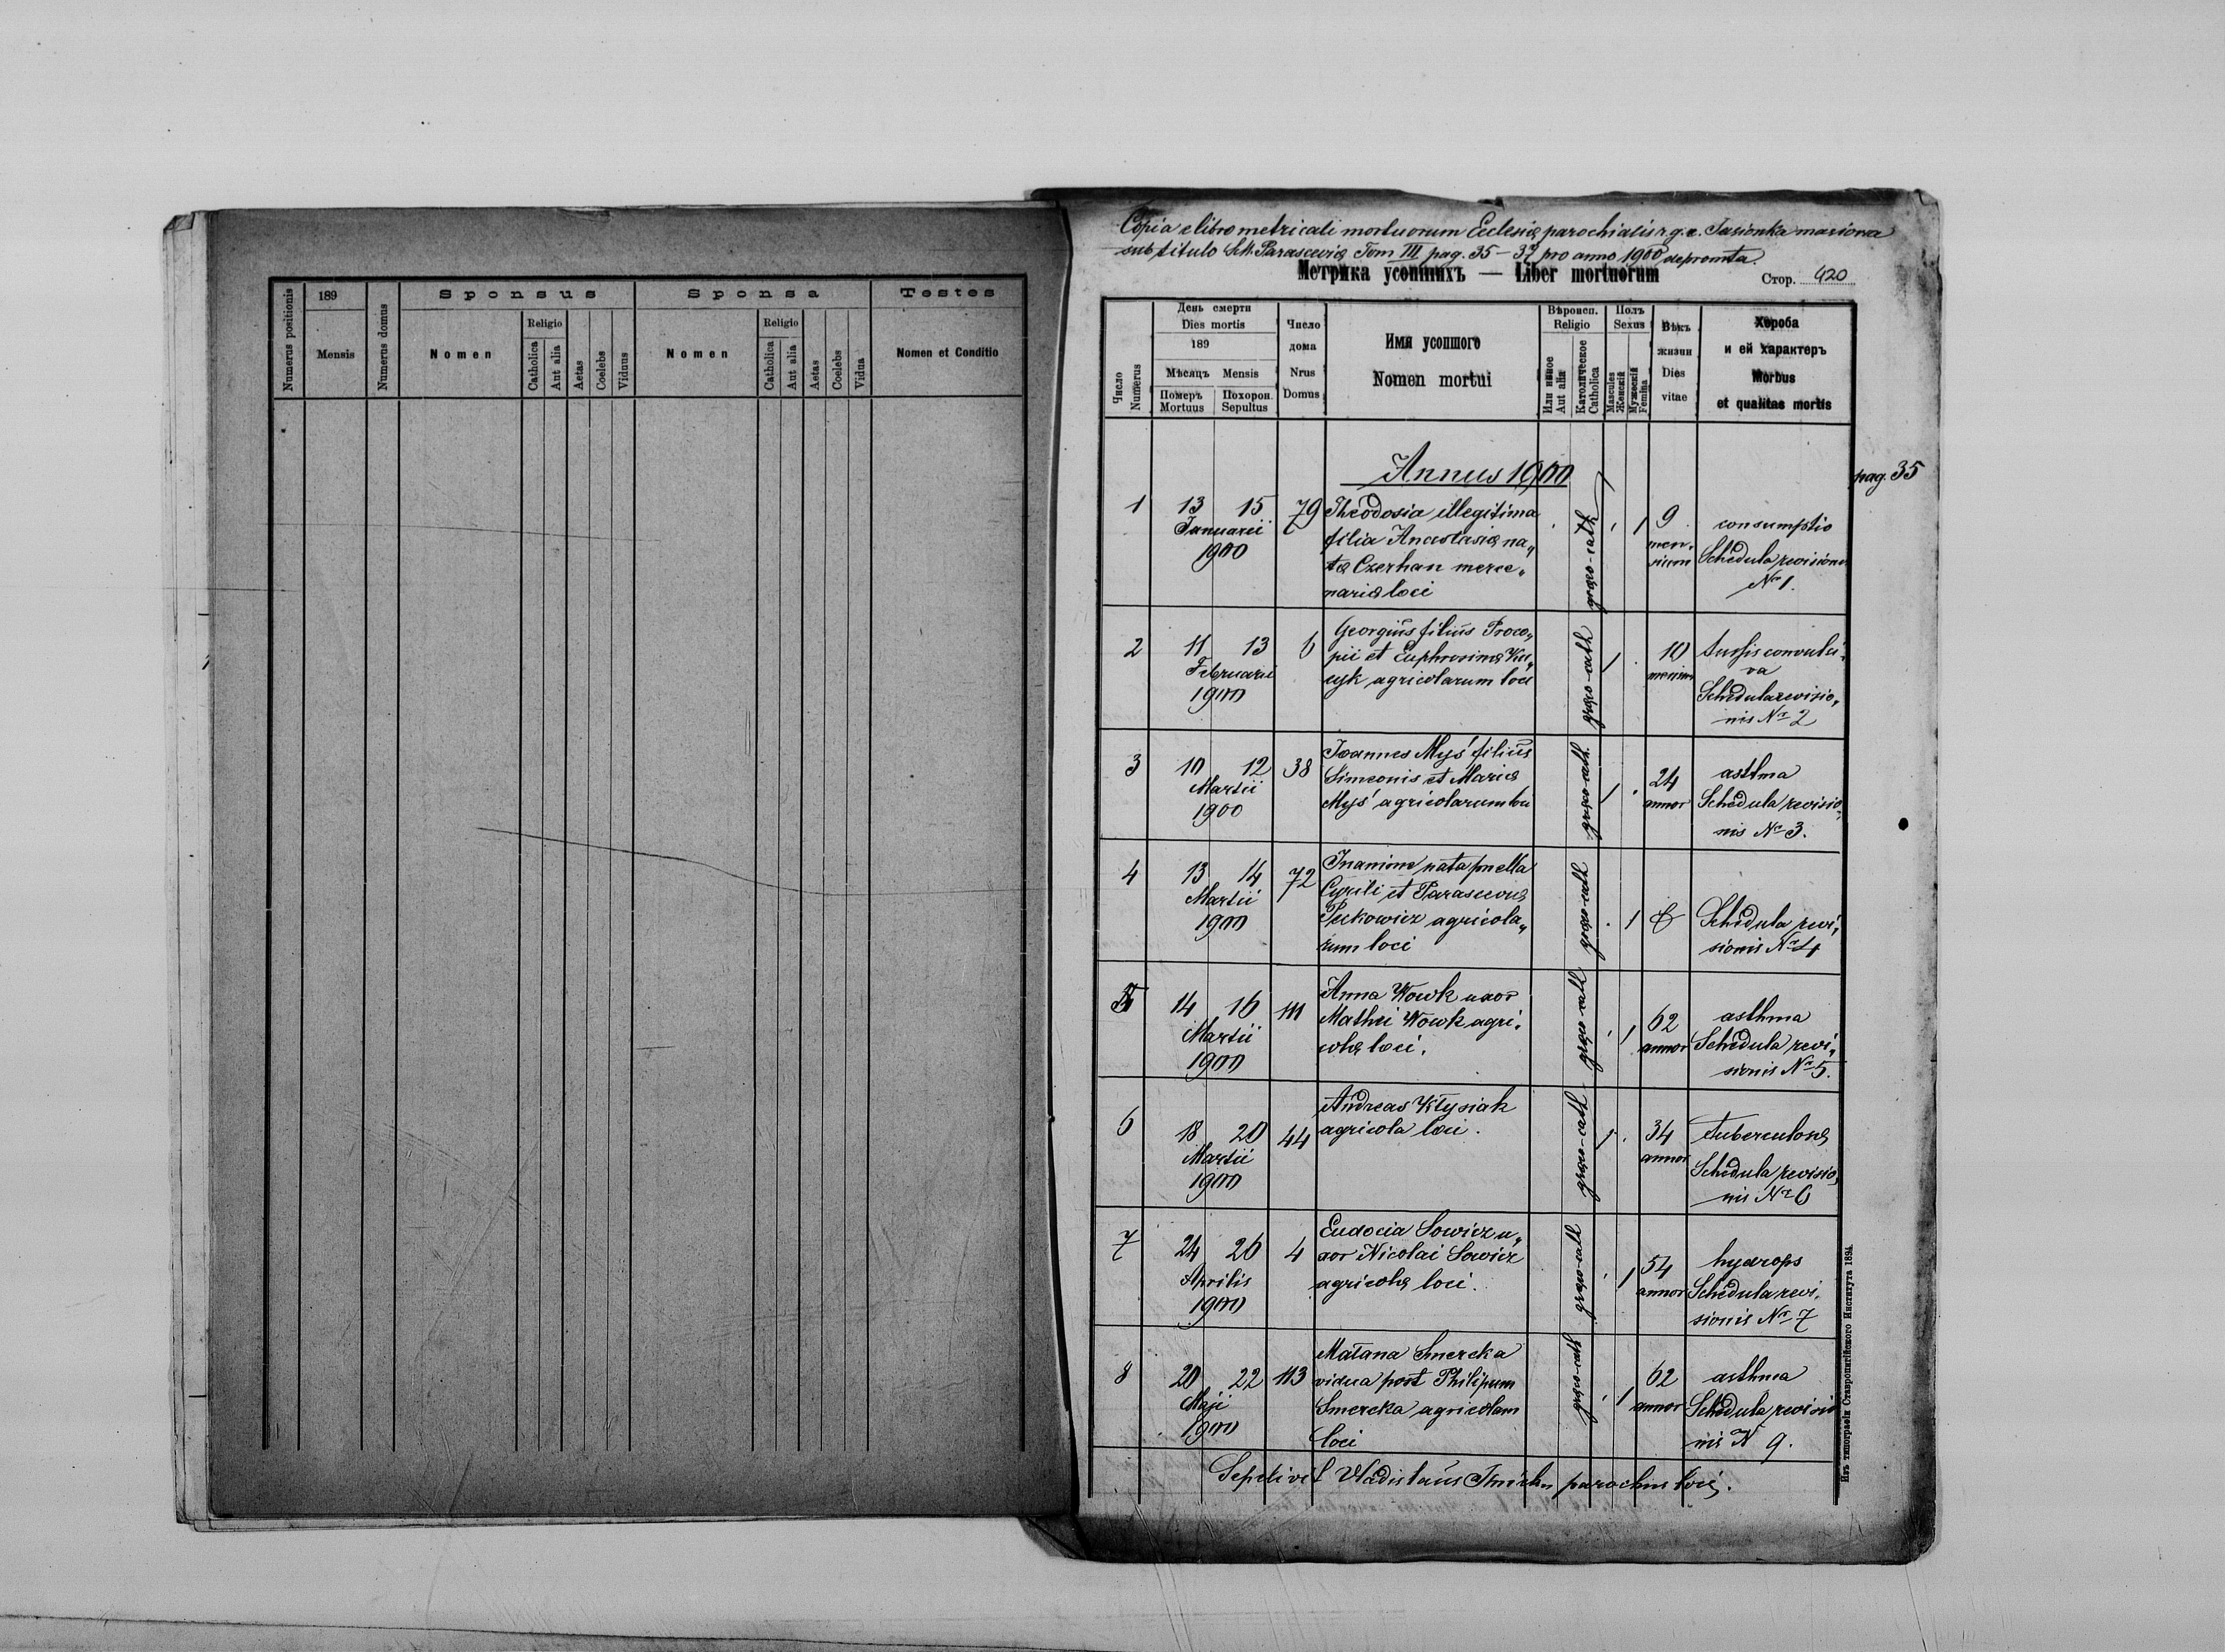 Numerus positionis
189
Mensis
Numerus domus
Sponsus
Nomen
Religio
Catholica
Aut alia
Aetas
Coelebs
Viduus
Sponsa
Nomen
Religio
Catholica
Aut alia
Aetas
Coelebs
Vidua
Testes
Nomen et Conditio
Copia e libro metricali mortuorum Eclesiæ parochialis r. g. c. Jasionka masiowa
sub titulo S. M. Parasceviæ Tom III pag. 35 - 37 pro anno 1900 depromta.
Метрика усопшихъ — Liber mortuorum
Стор. 420
Число
Numerus
День смерти
Dies mortis
189
Мѣсяцъ Mensis
Померъ
Mortuus
Похорон.
Sepultus
Число
дома
Nrus
Domus
Имя усопшого
Nomen mortui
Вѣроисп.
Religio
Или иное
Aut alia
Католическое
Catholica
Полъ
Sexus
Mascules
Женскій
Мужескій
Femina
Вѣкъ
жизни
Dies
vitae
Хороба
и ей характеръ
Morbus
et qualitas mortis
Annus 1900
pag. 35
1 13 15 79 Theodosia illegitima 1 9 consumptio
Januarii filia Anastasiæ na„ men„ Schedula revisionis
1900 tæ Czerhan merce„ sium Nr 1.
nariæ loci
græco-cath
2 11 13 6 Georgius filius Proco„ 1 10 tussis convulsi„
Februarii pii et Euphrosinæ Ku„ mensium va
1900 cyk agricolarum loci Schedula revisio„
nis Nr 2
græco-cath
3 10 12 38 Joannes Myś filius 1 24 asthma
Martii Simeonis et Mariæ annor Schedula revisio„
1900 Myś agricolarum loci nis Nr 3.
græco-cath.
4 13 14 72 Inanime nata puella 1
Martii Cyrili et Parasceviæ Schedula revi„
1900 agricola„ sionis Nr 4
rum loci
græco-cath
5 14 16 111 Anna Wowk uxor 1 62 asthma
Martii Mathei Wowk agri„ annor Schedula revi„
1900 colæ loci. sionis Nr 5.
græco-cath
6 18 20 44 Andreas Kłysiak 1 34 tuberculosæ
Martii agricola loci. annor Schedula revisio„
1900 nis Nr 6
græco-cath
7 24 26 4 Eudocia Sowicz u„ 1 54 hydrops
Aprilis xor Nicolai Sowicz annor Schedula revi„
1900 agricolæ loci. sionis Nr 7
græco-cath
8 20 22 113 Matana Smereka 1 62 asthma
Maji vidua post Philipum annor Schedula revisio
1900 Smereka agricolam nis N 9.
loci
græco-cath
Sepelivit Vladislaus parochus loci.
Изъ типографіи Ставропигійского Института 1894.